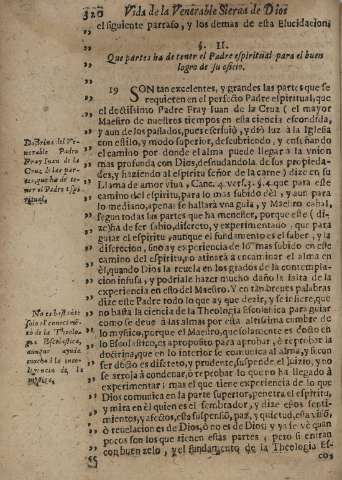 320 Vida de la Venerable Sierva de Dios
el siguiente parrafo, y los demas de esta Elucidacion.
§. II.
Que partes ha de tener el Padre espiritual para el buen
logro de su oficio.
19 SON tan excelentes, y grandes las partes que se
requieren en el perfecto Padre espiritual, que
el doctissimo Padre Fray Juan de la Cruz (el mayor
Maestro de nuestros tiempos en esta ciencia escondida,
y aun de los passados, pues escrivió, y dió luz à la Iglesia
con estilo, y modo superior, descubriendo, y enseñando
el camino por donde el alma puede llegar à la vnion
mas profunda con Dios, desnudandola de sus propieda-
des, y haziendo al espiritu señor de la carne) dize en su
Llama de amor viva, Canc. 4. vers. 3. §. 4. que para este
camino del espiritu, para lo mas subido dèl, y aun para
lo mediano, apenas se hallarà vna guia, y Maestro cabal,
segun todas las partes que ha menester, porque este (di-
ze) ha de ser sabio, discreto, y experimentado, que para
guiar el espiritu, aunque el fundamento es el saber, y la
discrecion, sino ay experiencia de lo mas subido en este
camino del espiritu, no atinarà à encaminar el alma en
èl, quando Dios la revela en los grados de la contempla-
cion infusa, y podriale hazer mucho daño la falta de la
experiencia en esto del Maestro. Y en tan breves palabras
dize este Padre todo lo que ay que dezir, y se infiere, que
no basta la ciencia de la Theologia Escolastica, para guiar
como se deve à las almas por esta altissima cumbre de
lo mystico, porque el Maestro, que solamente es docto en
lo Escolastico, es apropósito para aprobar, ò reprobar la
doctrina, que en lo interior se comunica al alma, y si con
ser docto es discreto, y prudente, suspende el juizio, y no
se arroja à condenar, ò reprobar lo que no ha llegado à
experimentar: mas el que tiene experiencia de lo que
Dios comunica en la parte superior, penetra el espiritu,
y mira en èl quien es el sembrador, y dize estos senti-
mientos, y afectos, esta suspensió, paz, y quietud, esta visió,
ò revelacion es de Dios, ò no es de Dios: y ya se vè quan
pocos son los que tienen estas partes, pero si entran
con buen zelo, y el fundamento de la Theologia Es-
cos
Doctrina del Ve-
nerable Padre
Fray Juan de la
Cruz de las par-
tes, que ha de te-
ner el Padre espi-
ritual.
No es bastáte
solo el conocimié-
to de la Theolo-
gia Escolastica,
aunque ayuda
mucho à la inte-
ligencia de la
mystica.